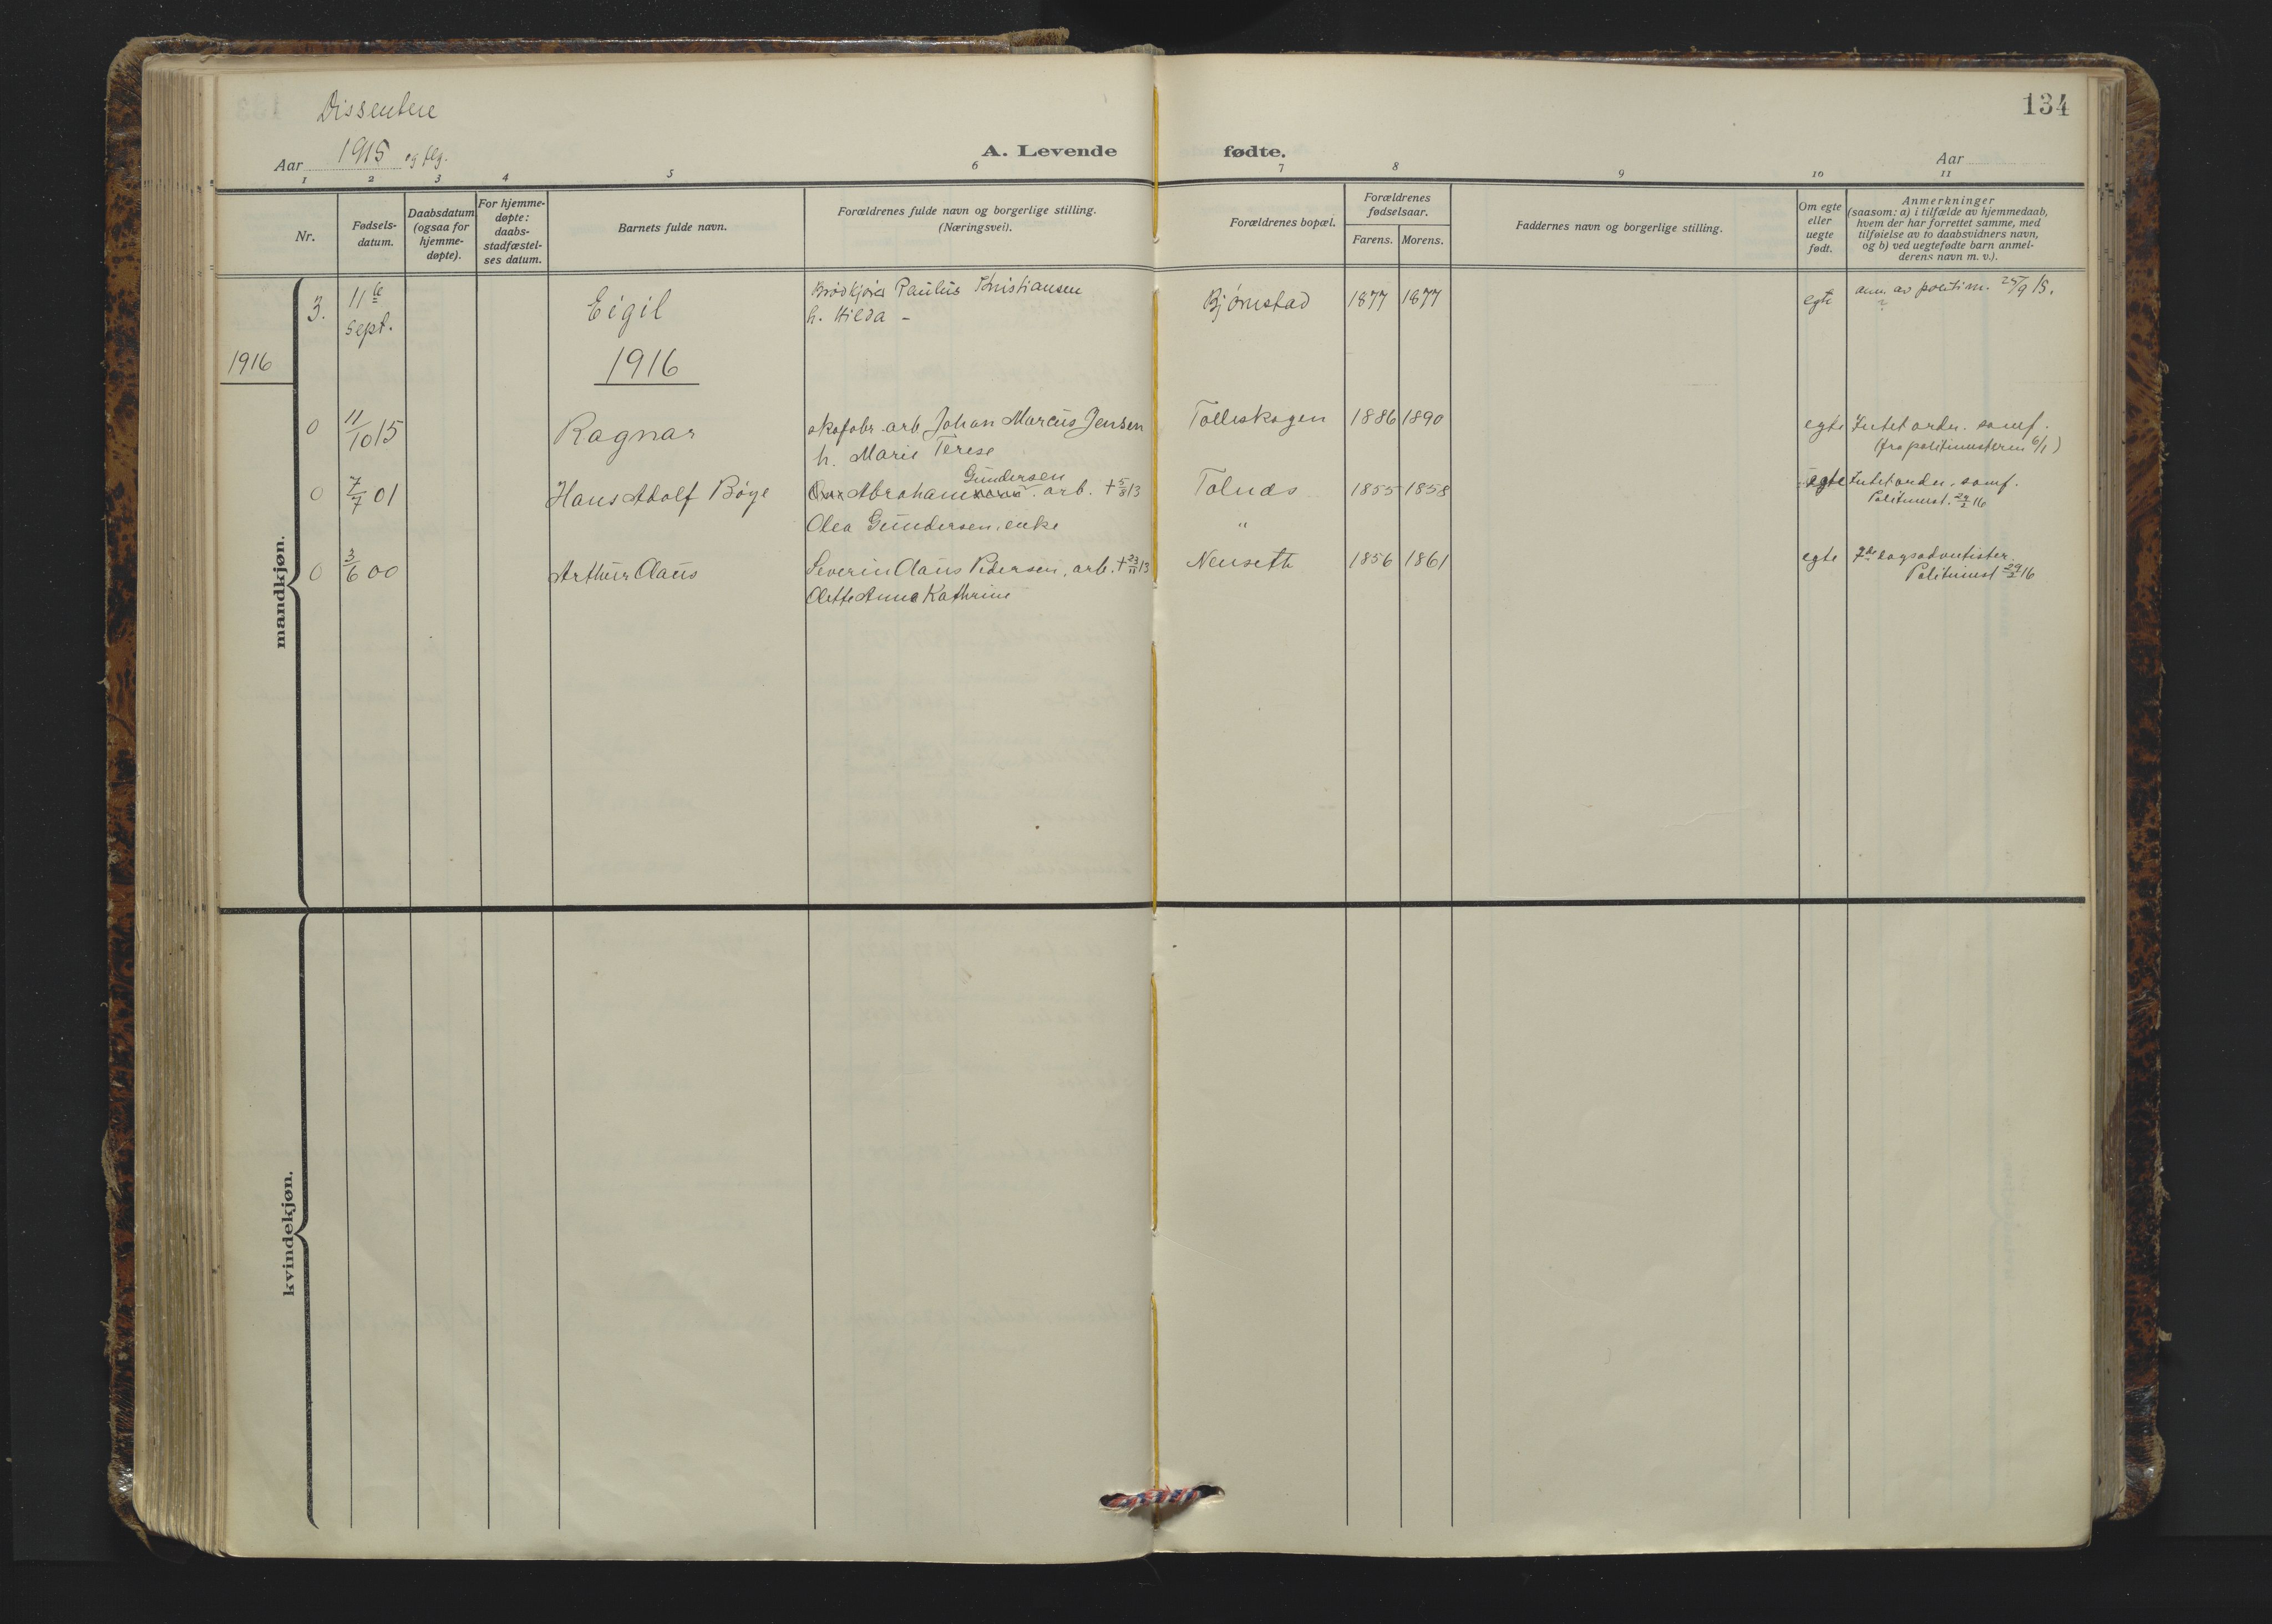 Dissentere
134
Aar 1915 og flg.
A. Levende fødte.
Aar
1 2 3 4 5 6 7 8 9 10 11
Nr.
Fødsels-
datum.
Daabsdatum
(ogsaa for
hjemme-
døpte).
For hjemme-
døpte:
daabs-
stadfæstel-
ses datum.
Barnets fulde navn.
Forældrenes fulde navn og borgerlige stilling.
(Næringsvei).
Forældrenes bopæl.
Forældrenes
fødselsaar.
Farens. Morens.
Faddernes navn og borgerlige stilling.
Om egte
eller
uegte
født.
Anmerkninger
(saasom: a) i tilfælde av hjemmedaab,
hvem der har forrettet samme, med
tilføielse av to daabsvidners navn,
og b) ved uegtefødte barn anmel-
derens navn m. v.).
3. 11te Eigil Brødkjører Paulus Kristiansen Bjørnstad 1877 1877 egte anm. av politim. 25/9 15.
sept. h. Hilda -
1916
1916
0 11/10 15 Ragnar skofabr. arb. Johan Marcus Jensen Tolleskogen 1886 1890 egte Intet ordn. samf.
h. Marie Terese (fra politimesteren 6/1)
Gundersen
0 7/7 01 Hans Adolf Böye Abraham arb. + 5/8 13 Tolnæs 1855 1858 egte Intet ordn. samf.
Politimest. 29/2 16
Olea Gundersen, enke "
0 3/6 00 Arthur Claus Severin Claus Pedersen, arb. + 23/11 13 Nenseth 1856 1861 egte 7de dagsadventister.
Politimest 29/2 16
Olette Anna Kathrine
mandkjøn.
kvindekjøn.